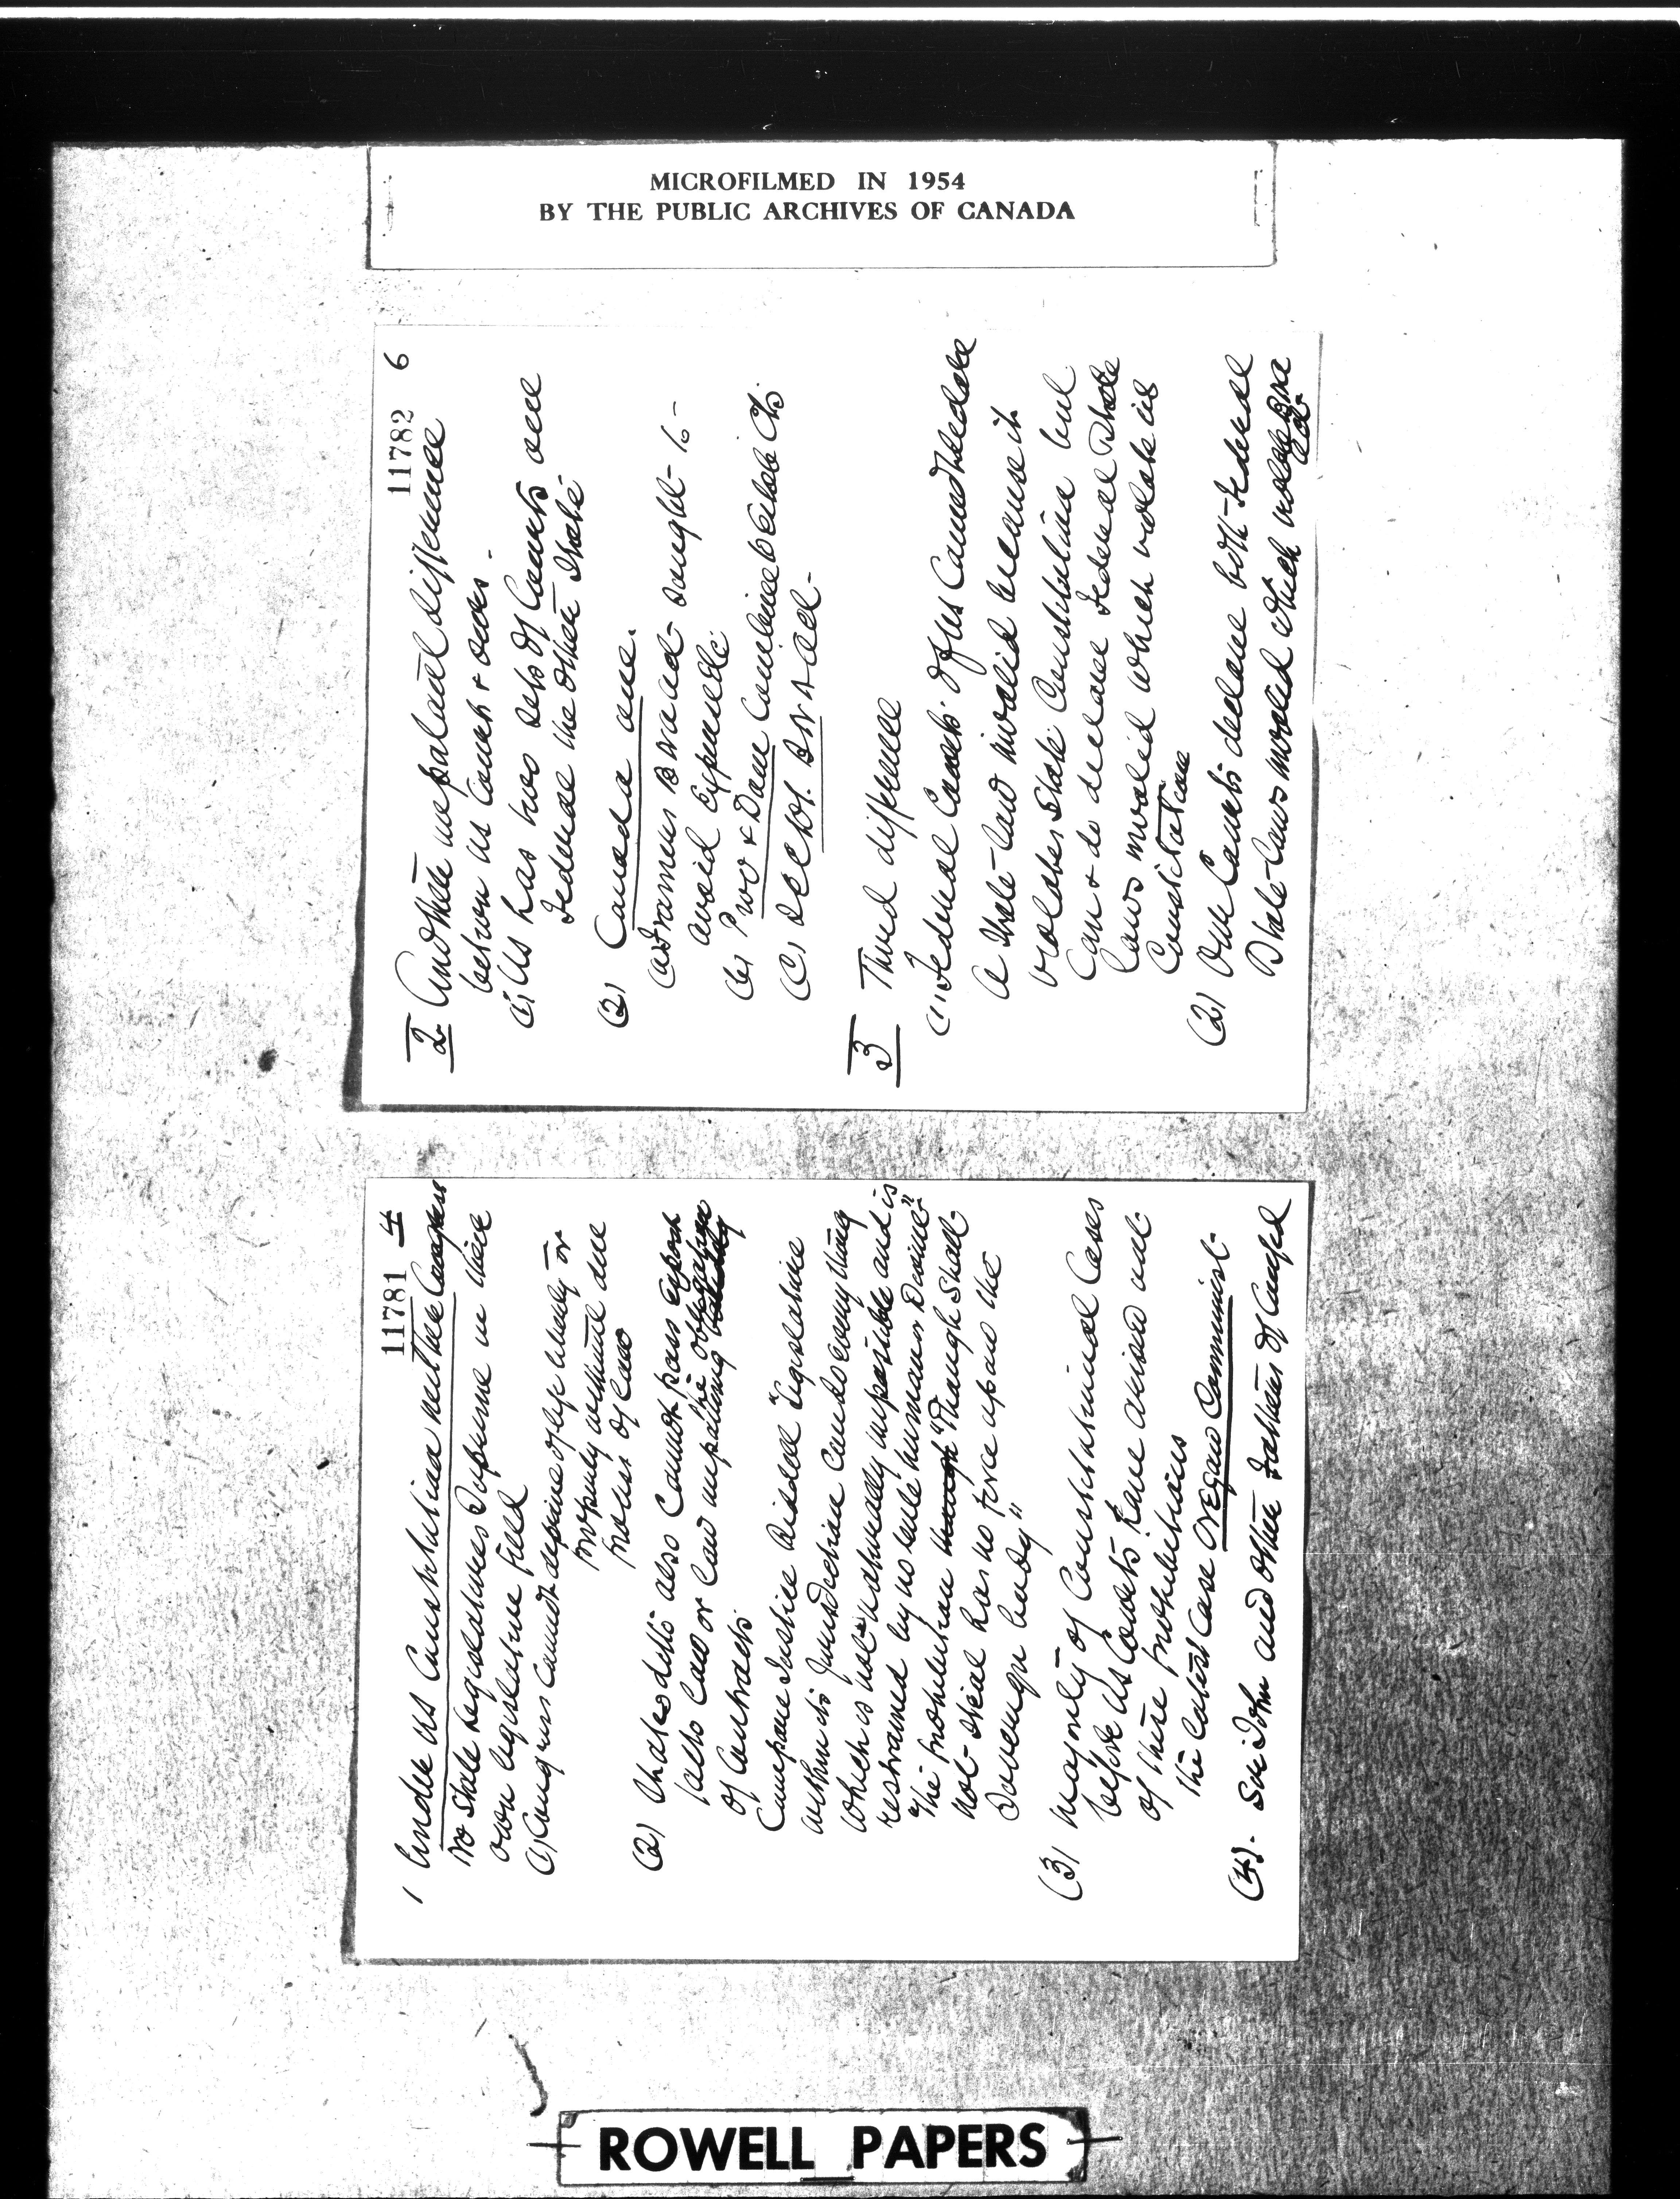 MICROFILMED IN 1954
BY THE PUBLIC ARCHIVES OF CANADA
11781 4
1 Under US Constitution neither Congress
no State Legislatures Supreme in their
own legislative field
(1) Congress cannot deprive of life liberty or
property without due
process of law
(2) States ditto also cannot pass Expost
facto law or law impairing the obligation
of Contracts
Compare Justice Riddell "Legislature
within its jurisdiction can do every thing
which is not naturally impossible and is
restrained by no rule human or Divine"
"The prohibition "Though Shalt
not steal has no force upon the
Sovereign body"
(3) Majority of Constitutional Cases
before US Courts have arisen out
of these prohibitions
the latest Case Oregan Communist
(4). Sir John and other Fathers of Confed
11782 6
2 Another important difference
between US Courts & ours
(1) US has two sets of Courts one
Federal the other State
(2) Canada one.
(a) Framers BNA act sought to
avoid Expense
(b) Prov & Dom
(c) Sec 101. BNA act
3 Third difference
(1) Federal Courts of US Cannot declare
a State law invalid because it
violates State Constitution but
can & do declare Federal State
laws invalid which violate US
Constitution
(2) Our Courts declare both Federal
State laws invalid which violate BNA
act
ROWELL PAPERS